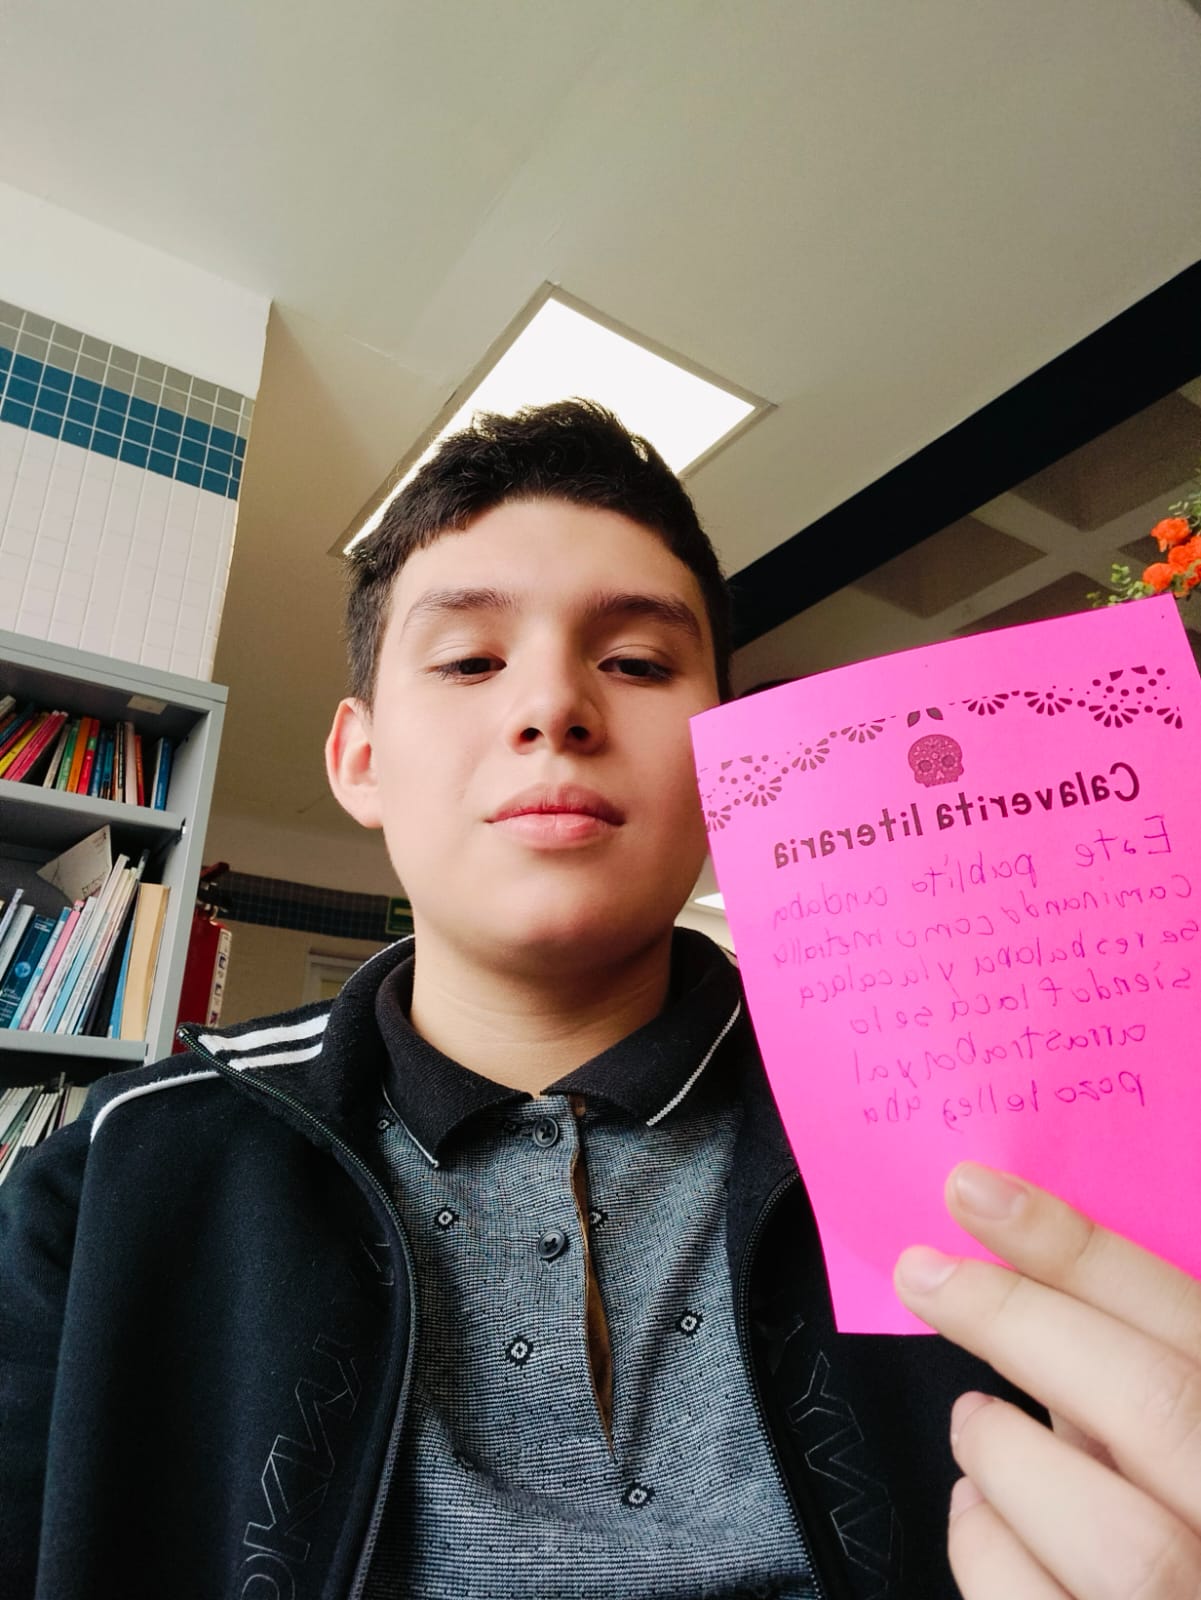 Calaverita literaria
Este pablito andaba
caminando como metralla
se resbalaba y la calaca
siendo flaca se lo
arrastraba y al
pozo lelleg aba